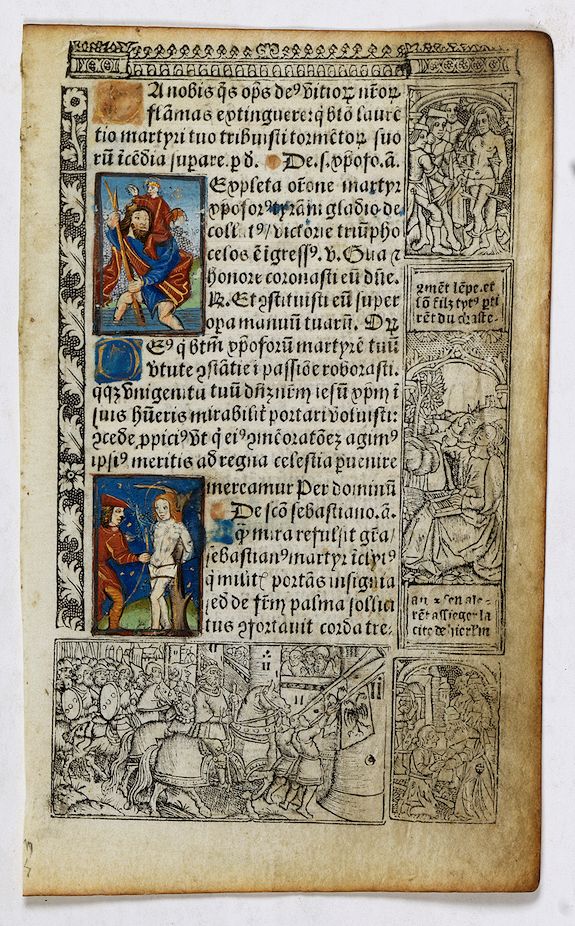 A nobis q̄s op̄s de⁹ vitioꝝ nr̄oꝝ
flāmas extinguere: q̇ btō laurē
tio martyri tuo tribuisti tormētoꝝ suo
rū īcēdia supare. p d. De. s. xp̄ofo. ā.
Expleta or̄one martyr
xp̄ofor⁹ tyrāni gladio de
coll t⁹ / victorie triūpho
celos ē īgress⁹. v. Gl'ia ⁊
honore coronasti eū dn̄e.
℟. Et ꝯstituisti eū super
opa manuū tuarū. Or̄
E⁹ q̇ btm̄ xp̄oforū martyrē tuū
v̇tute ꝯstātie ī passiōe roborasti.
qqȝ vnigenitu tuū dn̄zm̄ iesū xp̄m ī
suis hūeris mirabilit̄ portari voluisti:
ꝯcede ppici⁹ vt q̇ ei⁹ ꝯmēoratōeȝ agim⁹
ipsi⁹ meritis ad regna celestia puenire
mereamur Per dominū
De scō sebastiano. ā.
q̄ mira refulsit gr̄a /
sebastian⁹ martyr īclyt⁹
q̇ milit portās insignia
sed de fr̄m palma sollici
tus ꝯfortauit corda tre⸗
ꝯmēt lēpe. et
rēt du chaste⸗
rēt assieger la
cite de hierlm